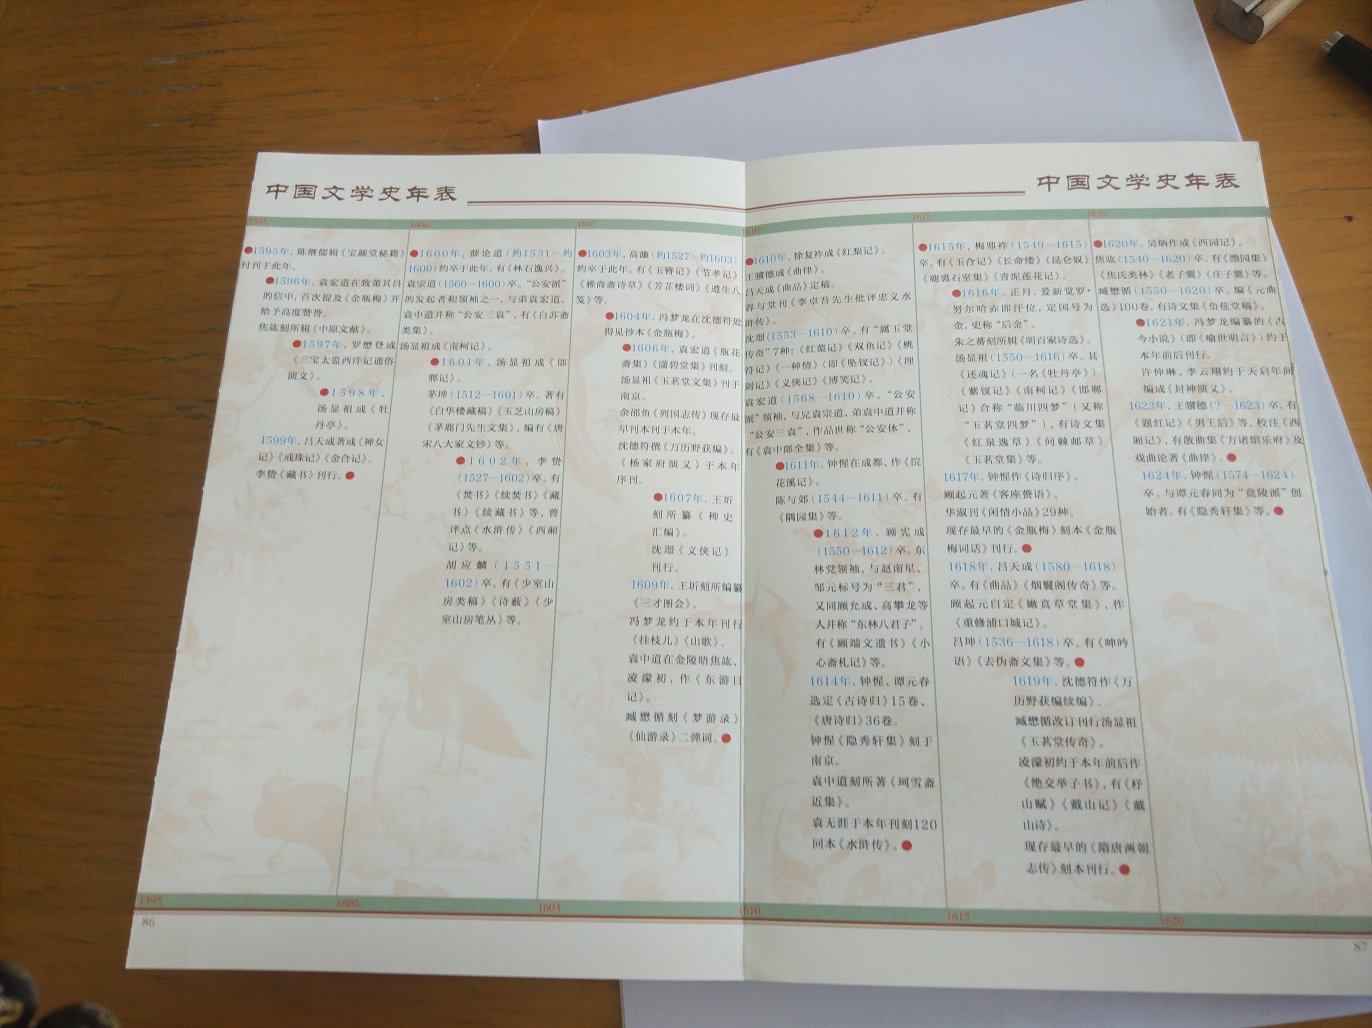 中国文学史年表
1595
1600
1603
●1595年，陈继儒辑《宝颜堂秘籍》
付刊于此年。
●1596年，袁宏道在致董其昌
的信中，首次提及《金瓶梅》并
给予高度赞誉。
焦竑刻所辑《中原文献》。
●1597年，罗懋登成
《三宝太监西洋记通俗
演义》。
●1598年，
汤显祖成《牡
丹亭》。
1599年，吕天成著成《神女
记》《戒珠记》《金合记》。
李贽《藏书》刊行。●
●1600年，薛论道（约1531—约
1600）约卒于此年。有《林石逸兴》。
袁宗道（1560—1600）卒。“公安派”
的发起者和领袖之一，与弟袁宏道、
袁中道并称“公安三袁”，有《白苏斋
类集》。
汤显祖成《南柯记》。
●1601年，汤显祖成《邯
郸记》。
茅坤（1512—1601）卒。著有
《白华楼藏稿》《玉芝山房稿》
《茅鹿门先生文集》，编有《唐
宋八大家文钞》等。
●1602年，李贽
（1527—1602）卒。有
《焚书》《续焚书》《藏
书》《续藏书》等，曾
评点《水浒传》《西厢
记》等。
胡应麟（1551—
1602）卒。有《少室山
房类稿》《诗薮》《少
室山房笔丛》等。
●1603年，高濂（约1527—约1603）
约卒于此年。有《玉簪记》《节孝记》
《雅尚斋诗草》《芳芷楼词》《遵生八
笺》等。
●1604年，冯梦龙在沈德符处
得见抄本《金瓶梅》。
●1606年，袁宏道《瓶花
斋集》《潇碧堂集》刊刻。
汤显祖《玉茗堂文集》刊于
南京。
余邵鱼《列国志传》现存最
早刊本刊于本年。
沈德符撰《万历野获编》。
《杨家府演义》于本年
序刊。
●1607年，王圻
刻所纂《稗史
汇编》。
沈璟《义侠记》
刊行。
1609年，王圻刻所编纂
《三才图会》。
冯梦龙约于本年刊行
《挂枝儿》《山歌》。
袁中道在金陵晤焦竑、
凌濛初，作《东游日
记》。
臧懋循刻《梦游录》
《仙游录》二弹词。●
1595
1600
1603
86
中国文学史年表
1610
1615
1620
●1610年，徐复祚成《红梨记》。
王骥德成《曲律》。
吕天成《曲品》定稿。
容与堂刊《李卓吾先生批评忠义水
浒传》。
沈璟（1553—1610）卒。有“属玉堂
传奇”7种：《红蕖记》《双鱼记》《桃
符记》《一种情》（即《坠钗记》）《埋
剑记》《义侠记》《博笑记》。
袁宏道（1568—1610）卒。“公安
派”领袖，与兄袁宗道、弟袁中道并称
“公安三袁”，作品世称“公安体”，
有《袁中郎全集》等。
●1611年，钟惺在成都，作《浣
花溪记》。
陈与郊（1544—1611）卒。有
《隅园集》等。
●1612年，顾宪成
（1550—1612）卒。东
林党领袖，与赵南星、
邹元标号为“三君”，
又同顾允成、高攀龙等
人并称“东林八君子”。
有《顾端文遗书》《小
心斋札记》等。
1614年，钟惺、谭元春
选定《古诗归》15卷、
《唐诗归》36卷。
钟惺《隐秀轩集》刻于
南京。
袁中道刻所著《珂雪斋
近集》。
袁无涯于本年刊刻120
回本《水浒传》。●
●1615年，梅鼎祚（1549—1615）
卒。有《玉合记》《长命缕》《昆仑奴》
《鹿裘石室集》《青泥莲花记》。
●1616年，正月，爱新觉罗·
努尔哈赤即汗位，定国号为
金，史称“后金”。
朱之蕃刻所辑《明百家诗选》。
汤显祖（1550—1616）卒。其
《还魂记》（一名《牡丹亭》）
《紫钗记》《南柯记》《邯郸
记》合称“临川四梦”（又称
“玉茗堂四梦”），有诗文集
《红泉逸草》《问棘邮草》
《玉茗堂集》等。
1617年，钟惺作《诗归序》。
顾起元著《客座赘语》。
华淑刊《闲情小品》29种。
现存最早的《金瓶梅》刻本《金瓶
梅词话》刊行。●
1618年，吕天成（1580—1618）
卒。有《曲品》《烟鬟阁传奇》等。
顾起元自定《嫩真草堂集》，作
《重修浦口城记》。
吕坤（1536—1618）卒。有《呻吟
语》《去伪斋文集》等。●
1619年，沈德符作《万
历野获编续编》。
臧懋循改订刊行汤显祖
《玉茗堂传奇》。
凌濛初约于本年前后作
《绝交举子书》，有《杼
山赋》《戴山记》《戴
山诗》。
现存最早的《隋唐两朝
志传》刻本刊行。●
●1620年，吴炳作成《西园记》。
焦竑（1540—1620）卒。有《澹园集》
《焦氏类林》《老子翼》《庄子翼》等。
臧懋循（1550—1620）卒。编《元曲
选》100卷，有诗文集《负苞堂稿》。
●1621年，冯梦龙编纂的《古
今小说》（即《喻世明言》）约于
本年前后刊行。
许仲琳、李云翔约于天启年间
编成《封神演义》。
1623年，王骥德（？—1623）卒。有
《题红记》《男王后》等，校注《西
厢记》，有散曲集《方诸馆乐府》及
戏曲论著《曲律》。●
1624年，钟惺（1574—1624）
卒。与谭元春同为“竟陵派”创
始者。有《隐秀轩集》等。●
1610
1615
1620
87